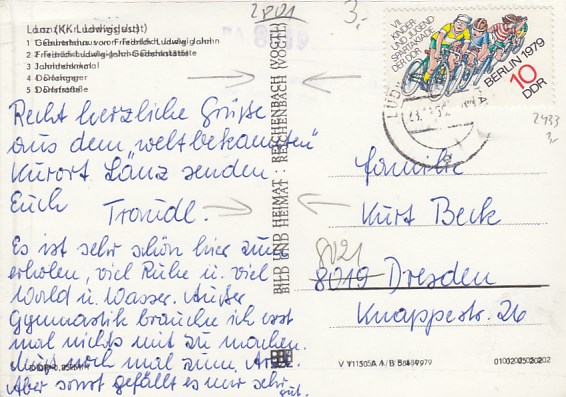 2801
3.-
Lanz (KK Ludwigslust)
1 Geburtshaus von Friedrich Ludwig Jahn
2 Friedrich-Ludwig-Jahn-Gedenkstätte
3 Jahndenkmal
4 Dorfanger
5 Dorfstraße
Recht herzliche Grüße
aus dem „weltbekannten"
Kurort Länz senden
Euch
Traudl.
Es ist sehr schön hier zum
erholen, viel Ruhe u. viel
Wald u. Wasser. Außer
Gymnastik brauche ich erst
mal nichts mit zu machen.
Muß noch mal zum Arzt.
Aber sonst gefällt es mir sehr
gut.
BILD UND HEIMAT REICHENBACH (VOGTL)
VII.
KINDER-
UND JUGEND-
SPARTAKIADE
DER DDR
BERLIN 1979
10
DDR
2433
3,-
Familie
Kurt Beck
8021
8019 Dresden
Knappestr. 26
V 11 50 A 1/B
01 02 05 02 202